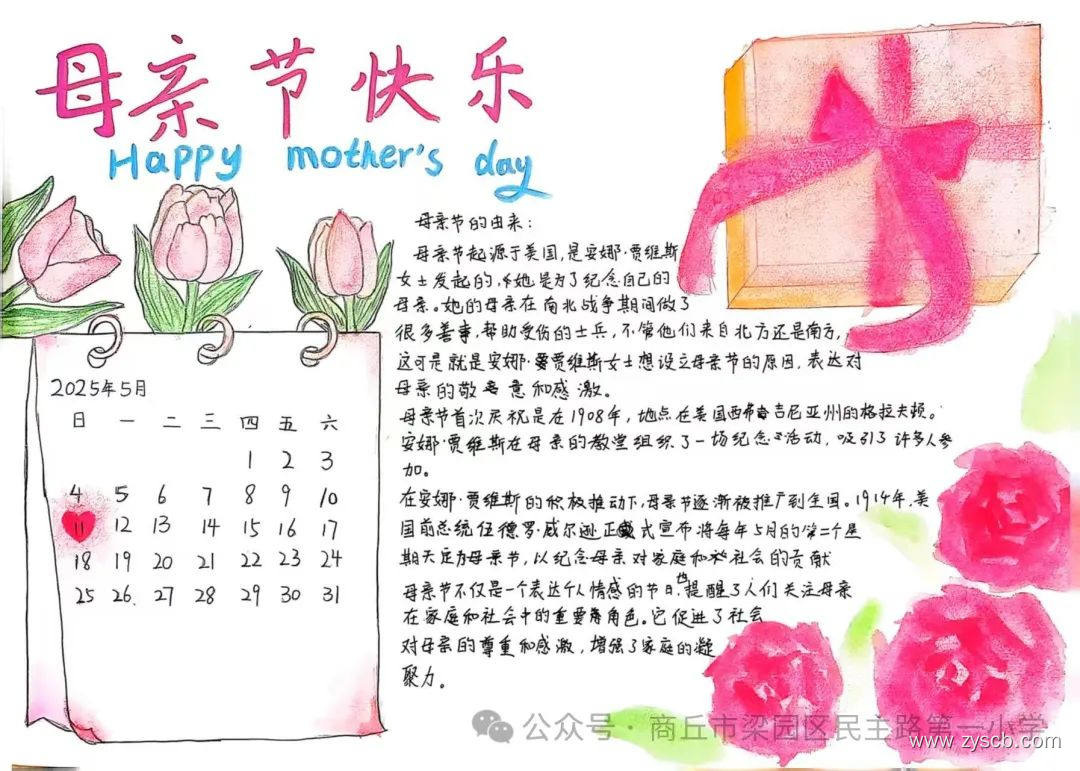 母亲节快乐
Happy mother's day
母亲节的由来:
母亲节起源于美国,是安娜·贾维斯
女士发起的,她是为了纪念自己的
母亲。她的母亲在南北战争期间做了
很多善事,帮助受伤的士兵,不管他们来自北方还是南方,
这可是就是安娜·贾维斯女士想设立母亲节的原因,表达对
母亲的敬意和感激。
母亲节首次庆祝是在1908年,地点在美国西弗吉尼亚州的格拉夫顿。
安娜·贾维斯在母亲的教堂组织了一场纪念活动,吸引了许多人参
加。
在安娜·贾维斯的积极推动下,母亲节逐渐被推广到全国。1914年,美
国前总统伍德罗·威尔逊正式宣布将每年5月的第二个星
期天定为母亲节,以纪念母亲对家庭和社会的贡献
母亲节不仅是一个表达个人情感的节日,也提醒了人们关注母亲
在家庭和社会中的重要角色。它促进了社会
对母亲的尊重和感激,增强了家庭的凝
聚力。
2025年5月
日 一 二 三 四 五 六
1 2 3
4 5 6 7 8 9 10
11 12 13 14 15 16 17
18 19 20 21 22 23 24
25 26 27 28 29 30 31
公众号·商丘市梁园区民主路第一小学
www.zyscb.com